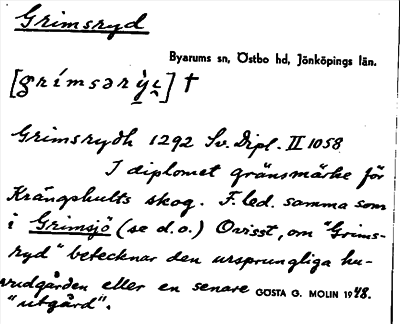 Grimsryd
Byarums sn, Östbo hd, Jönköpings län.
[grímsərỳ] †
Grimsrydh 1292 Sv. Dipl. II 1058
I diplomet gränsmärke för
Krängshults skog. F. led. samma som
i Grimsjö (se d.o.) Ovisst, om "Grims-
ryd" betecknar den ursprungliga hu-
vudgården eller en senare GÖSTA G. MOLIN 1948.
"utgård".